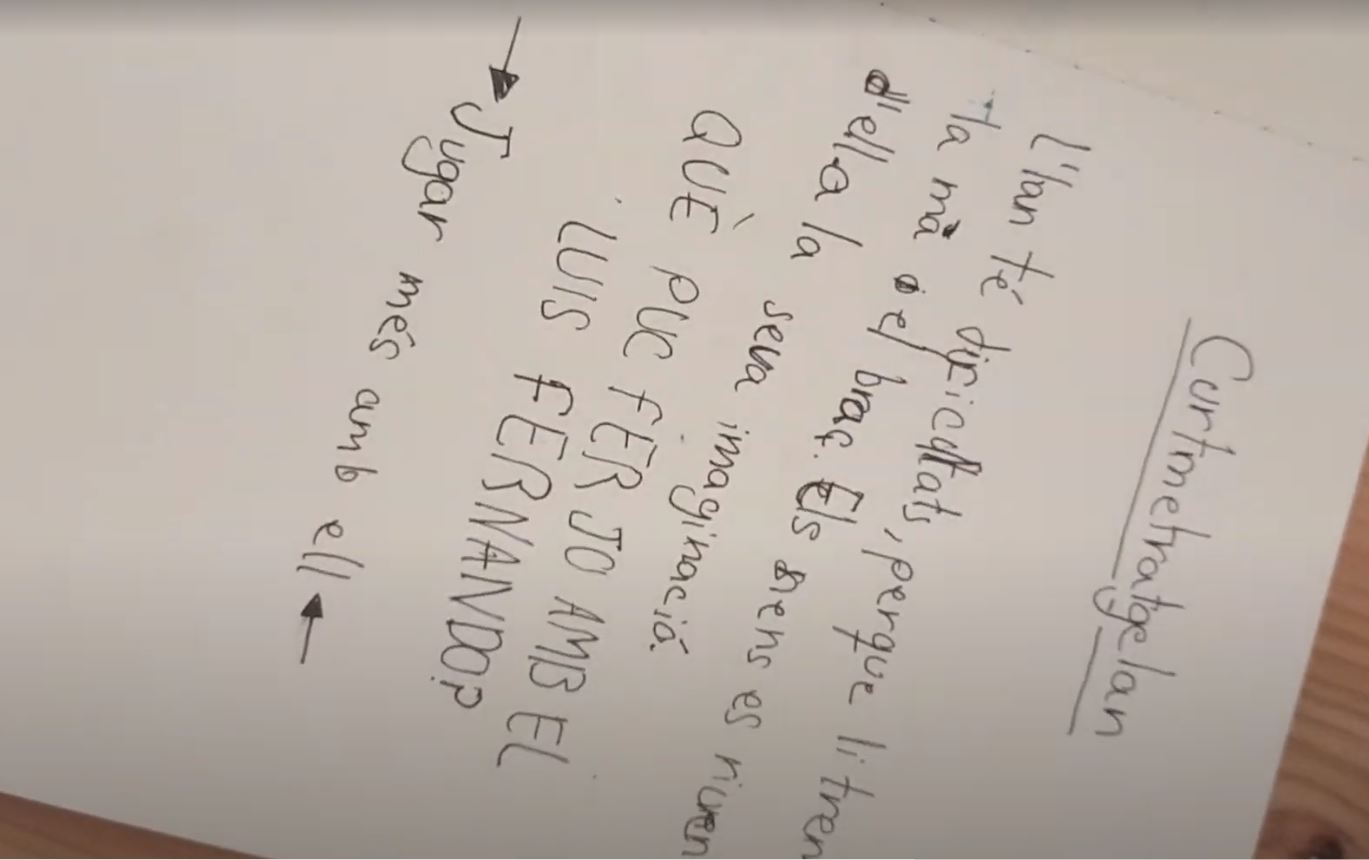 Curtmetratge Ian
L'Ian té dificultats, perque li tren
la mà i el braç. Els nens es riuen
d'ella la seva imaginació.
QUÈ PUC FER JO AMB EL
LUIS FERNANDO?
→ Jugar més amb ell ←